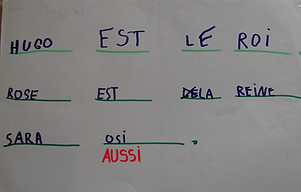 HUGO EST LE ROI.
ROSE EST LA REINE
SARA OSI.
AUSSI